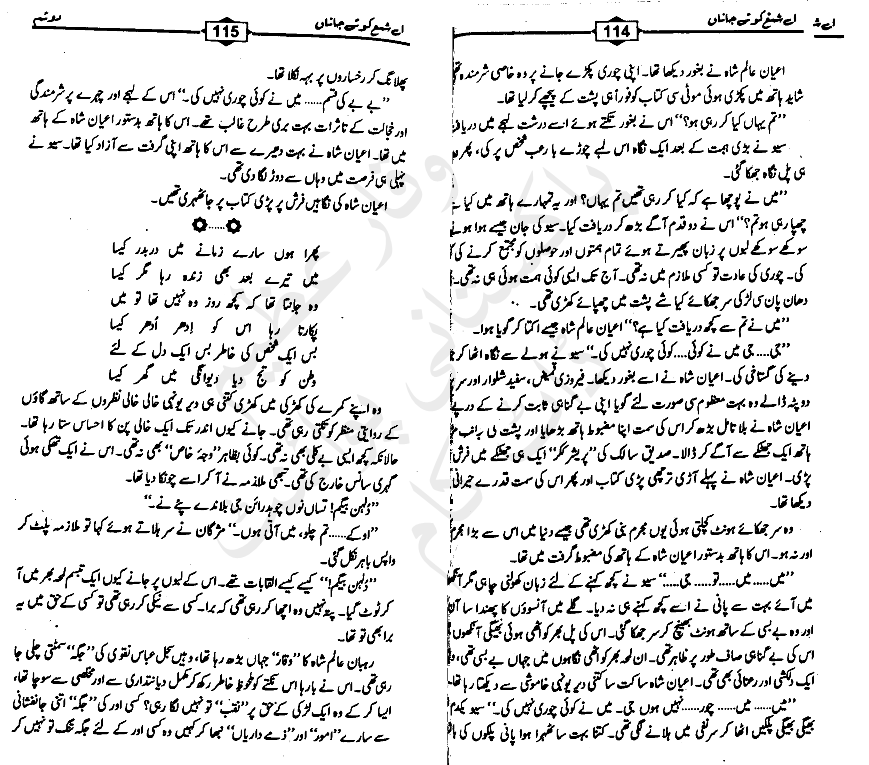 اے شمع کوئے جاناں
114
اعیان عالم شاہ نے بغور دیکھا تھا۔ اپنی چوری پکڑے جانے پر وہ خاصی شرمندہ تھی
شاید ہاتھ میں پکڑی ہوئی موٹی سی کتاب کو فوراً ہی پشت کے پیچھے کر لیا تھا۔
”تم یہاں کیا کر رہی ہو؟“ اس نے بغور تکتے ہوئے اسے درشت لہجے میں دریافت
سیو نے بڑی ہمت کے بعد ایک نگاہ اس لمبے چوڑے بارعب شخص پر کی، پھر
ہی پل نگاہ جھکا گئی۔
”میں نے پوچھا ہے کہ کیا کر رہی تھیں تم یہاں؟ اور یہ تمہارے ہاتھ میں کیا ہے
چھپا رہی ہو تم؟“ اس نے دو قدم آگے بڑھ کر دریافت کیا۔ سیو کی جان جیسے ہوا ہونے
سوکھے سوکھے لبوں پر زبان پھیرتے ہوئے تمام ہمتوں اور حوصلوں کو مجتمع کرنے کی
کی۔ چوری کی عادت تو کسی ملازم میں نہ تھی۔ آج تک ایسی کوئی ہمت ہوئی ہی نہ تھی۔
دھان پان سی لڑکی سر جھکائے کیا شے پشت میں چھپائے کھڑی تھی۔
”میں نے تم سے کچھ دریافت کیا ہے؟“ اعیان عالم شاہ جیسے اکتا کر گویا ہوا۔
”جی....جی میں نے کوئی....کوئی چوری نہیں کی۔“ سیو نے ہولے سے نگاہ اٹھا کر
دینے کی گستاخی کی۔ اعیان شاہ نے اسے بغور دیکھا۔ فیروزی قمیض، سفید شلوار اور سر پر
دوپٹہ ڈالے وہ بہت معصوم سی صورت لئے گویا اپنی بے گناہی ثابت کرنے کے درپے
اعیان شاہ نے بلا تامل بڑھ کر اس کی سمت اپنا مضبوط ہاتھ بڑھایا اور پشت کی جانب
ہاتھ ایک جھٹکے سے آگے کر ڈالا۔ صدیق سالک کی ”پریشر ککر“ ایک ہی جھٹکے میں فرش
پڑی۔ اعیان شاہ نے پہلے آڑی ترچھی پڑی کتاب اور پھر اس کی سمت قدرے حیرانی
دیکھا تھا۔
وہ سر جھکائے ہونٹ کچلتی ہوئی یوں مجرم بنی کھڑی تھی جیسے دنیا میں اس سے بڑا مجرم
اور نہ ہو۔ اس کا ہاتھ بدستور اعیان شاہ کے ہاتھ کی مضبوط گرفت میں تھا۔
”میں.....میں....تو.....جی....“ سیو نے کچھ کہنے کے لئے زبان کھولنی چاہی مگر آنکھوں
میں آئے بہت سے پانی نے اسے کچھ کہنے ہی نہ دیا۔ گلے میں آنسوؤں کا پھندا سا
اور وہ بے بسی کے ساتھ ہونٹ بھینچ کر سر جھکا گئی۔ اس کی پل بھر کو اٹھی ہوئی بھیگی آنکھوں
اس کی بے گناہی صاف طور پر ظاہر تھی۔ ان لمحہ بھر کو اٹھی نگاہوں میں جہاں بے بسی تھی، وہیں
ایک دلکشی اور رعنائی بھی تھی۔ اعیان شاہ ساکت سا کتنی دیر یونہی خاموشی سے دیکھتا رہا تھا۔
”میں.....میں.....چور.....نہیں ہوں جی۔ میں نے کوئی چوری نہیں کی۔“ سیو یکدم
بھیگی بھیگی پلکیں اٹھا کر سر نفی میں ہلانے لگی تھی۔ کتنا بہت سا ٹھہرا ہوا پانی پلکوں کی
اے شمع کوئے جاناں
115
دوئم
پھلانگ کر رخساروں پر بہہ نکلا تھا۔
”بے بے کی قسم..... میں نے کوئی چوری نہیں کی۔“ اس کے لہجے اور چہرے پر شرمندگی
اور خجالت کے تاثرات بہت بری طرح غالب تھے۔ اس کا ہاتھ بدستور اعیان شاہ کے ہاتھ
میں تھا۔ اعیان شاہ نے بہت دھیرے سے اس کا ہاتھ اپنی گرفت سے آزاد کیا تھا۔ سیو نے
پہلی ہی فرصت میں وہاں سے دوڑ لگا دی تھی۔
اعیان شاہ کی نگاہیں فرش پر پڑی کتاب پر جا ٹھہری تھیں۔
پھرا ہوں سارے زمانے میں در بدر کیسا
میں تیرے بعد بھی زندہ رہا مگر کیسا
وہ جانتا تھا کہ کچھ روز وہ نہیں تھا تو میں
پکارتا رہا اس کو اِدھر اُدھر کیسا
بس ایک شخص کی خاطر بس ایک دل کے لئے
وطن کو تج دیا دیوانگی میں گھر کیسا
وہ اپنے کمرے کی کھڑکی میں کھڑی کتنی ہی دیر یونہی خالی خالی نظروں کے ساتھ گاؤں
کے روایتی منظر کو تکتی رہی تھی۔ جانے کیوں اندر تک ایک خالی پن کا احساس ستا رہا تھا۔
حالانکہ کچھ ایسی بے کلی بھی نہ تھی۔ کوئی بظاہر ”وجۂ خاص“ بھی نہ تھی۔ اس نے ایک تھکی ہوئی
گہری سانس خارج کی تھی۔ تبھی ملازمہ نے آ کر اسے چونکا دیا تھا۔
”دُلہن بیگم! تساں نوں چوہدرائن جی بلاندے پئے نے۔“
”اوکے..... تم چلو، میں آتی ہوں۔“ مژگان نے سر ہلاتے ہوئے کہا تو ملازمہ پلٹ کر
واپس باہر نکل گئی۔
”دُلہن بیگم!“ کیسے کیسے القابات تھے۔ اس کے لبوں پر جانے کیوں ایک تبسم لمحہ بھر میں آ
کر ٹوٹ گیا۔ پتہ نہیں وہ اچھا کر رہی تھی کہ برا۔ کسی سے نیکی کر رہی تھی تو کسی کے حق میں یہ
برا بھی تو تھا۔
رہبان عالم شاہ کا ”وقار“ جہاں بڑھ رہا تھا، وہیں سجل عباس نقوی کی ”جگہ“ سمٹتی چلی جا
رہی تھی۔ اس نے بارہا اس نکتے کو ملحوظِ خاطر رکھ کر مکمل دیانتداری سے اور مخلصی سے سوچا تھا،
ایسا کر کے وہ ایک لڑکی کے حق پر ”نقب“ تو نہیں لگا رہی؟ کسی اور کی ”جگہ“ اتنی جانفشانی
سے سارے ”امور“ اور ”ذمے داریاں“ نبھا کر کہیں وہ کسی اور کے لئے جگہ تنگ تو نہیں کر